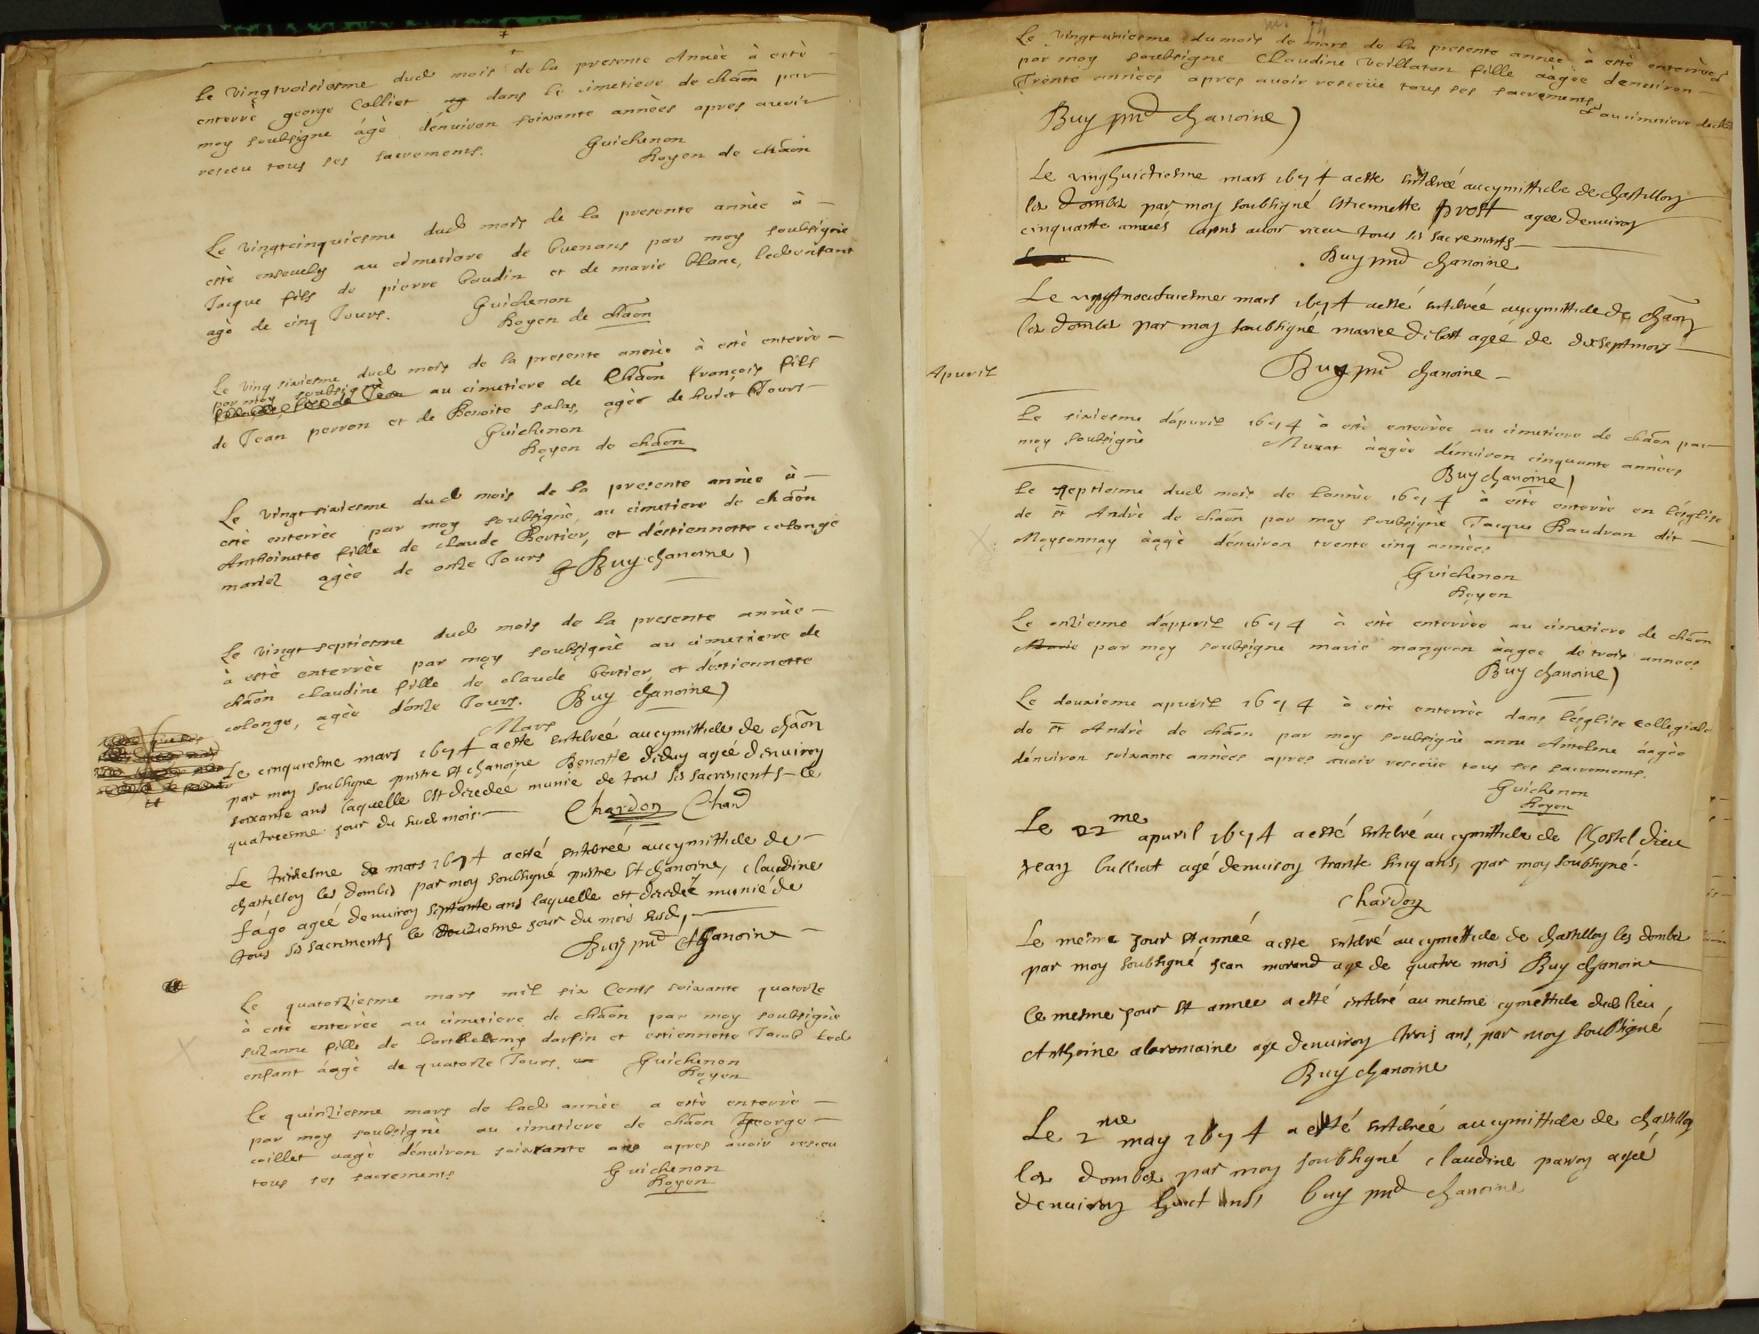 Le vingtroisiesme dud mois de la presente Année à esté
enterré george Colliet dans le cimetiere de chãon par
moy soubsigne ágé dénuiron soixante années apres auoir
receu tous ses sacrements.
Guichenon
Doyen de chãon
Le vingtcinquiesme dud mois de la presente année à
esté enseuely au cimetiere de buenans par moy soubsigné
Jacque fils de pierre boudin et de marie blanc, led enfant
agé de cinq Jours.
Guichenon
Doyen de chãon
Le vingt sixiesme dud mois de la presente année à esté enterré
par moy soubsigné au cimetiere de Chãon françois fils
de Jean perron et de Benoite salas, agée de huict Jours
Guichenon
Doyen de chãon
Le vingt sixiesme dud mois de la presente année à
esté enterrée par moy soubsigné, au cimetiere de chãon
Anthoinette fille de claude Bertier, et déstiennette colonge
mariez agée de onze Jours
Buy chanoine
Le vingt septiesme dud mois de la presente année
à esté enterrée par moy soubsigné au cimetiere de
chãon claudine fille de claude bertier, et déstiennette
colonge, agée dónze Jours. Buy chanoine
Mars
Le cinquiesme mars 1674 a esté enterré au cymittiele de chãon
par moy soubsigne prestre et chanoine Benoitte agée denuiron
soixante ans laquelle est decedée munie de tous ses sacrements ce
quatriesme jour du sud mois
Chardon Chard
Le treisiesme de mars 1674 a esté enterrée au cymittiele de
chastillon les dombes par moy soubsigné prestre et chanoine, claudine
fágo ageé denuiron septante ans laquelle est decedeé munié de
tous ses sacrements le douziesme jour du mois susd,
Buy prd chanoine
Le quatorziesme mars mil six Cents soixante quatorze
à esté enterrée au cimetiere de chãon par moy soubsigné
suzanne fille de barthelemy darfin et estiennette Jacob led
enfant áagé de quatorze Jours. Guichenon
Doyen
Le quinziesme mars de lad année a esté enterré
par moy soubsigné au cimetiere de chãon George
collet aagé dénuiron soixante ans apres auoir receu
tous ses sacrements
Guichenon
Doyen
Le vingtuniesme du mois de mars de la presente année à esté enterrée
par moy soubsigne Claudine Veillaton fille áagée denuiron
Trente années apres auoir receüe tous ses sacrements
au cimetiere de chãon
Buy prd chanoine
Le vinghuictiesme mars 1674 a esté enterreé au cymittiele de chastillon
les dombes par moy soubsigné, estiennette prost agee denuiron
cinquante années apres auoir receu tous ses sacrements
Buy prd chanoine
Le vingtneufuiesme mars 1674 a esté enterrée au cymittiele de chãon
les dombes par moy soubsigne mariee agée de dixsept mois
Buy prd chanoine
Apuril
Le sixiesme d'apuril 1674 à esté enterrée au cimetiere de chãon par
moy soubsigné Murat áagée dénuiron cinquante années
Buy chanoine
Le septiesme dud mois de lannée 1674 à esté enterré en l'églize
de st Andrè de chãon par moy soubsigné Jacque Baudran dit
Moysonnay áagé dénuiron trente cinq années
Guichenon
Doyen
Le onziesme d'appuril 1674 à esté enterrée au cimetiere de chãon
par moy soubsigne marie mangeon àagée de trois années
Buy chanoine
Le douxieme apuril 1674 à esté enterrée dans l'église collegiale
de st Andrè de chãon par moy soubsigné anne Antoine áagée
dénuiron soixante années apres auoir receüe tous ses sacrements.
Guichenon
Doyen
Le 22me apuril 1674 a esté enterré au cymittiele de l'hostel dieu
jean bulliat agé denuiron trante sing ans, par moy soubsigné
Chardon
Le mesme jour et année a esté enterré au cymettiele de chastillon les dombes
par moy soubsigné jean morand age de quatre mois Buy chanoine
Ce mesme jour et année a esté enterré au mesme cymettiele dud lieu
Anthoine alaromaine age denuiron trois ans, par moy soubsigné
Buy chanoine
Le 2me may 1674 a esté enterreé au cymittiele de chastillon
les dombes par moy soubsigné claudine pavoy ageé
denuiron huict ans buy prd chanoine